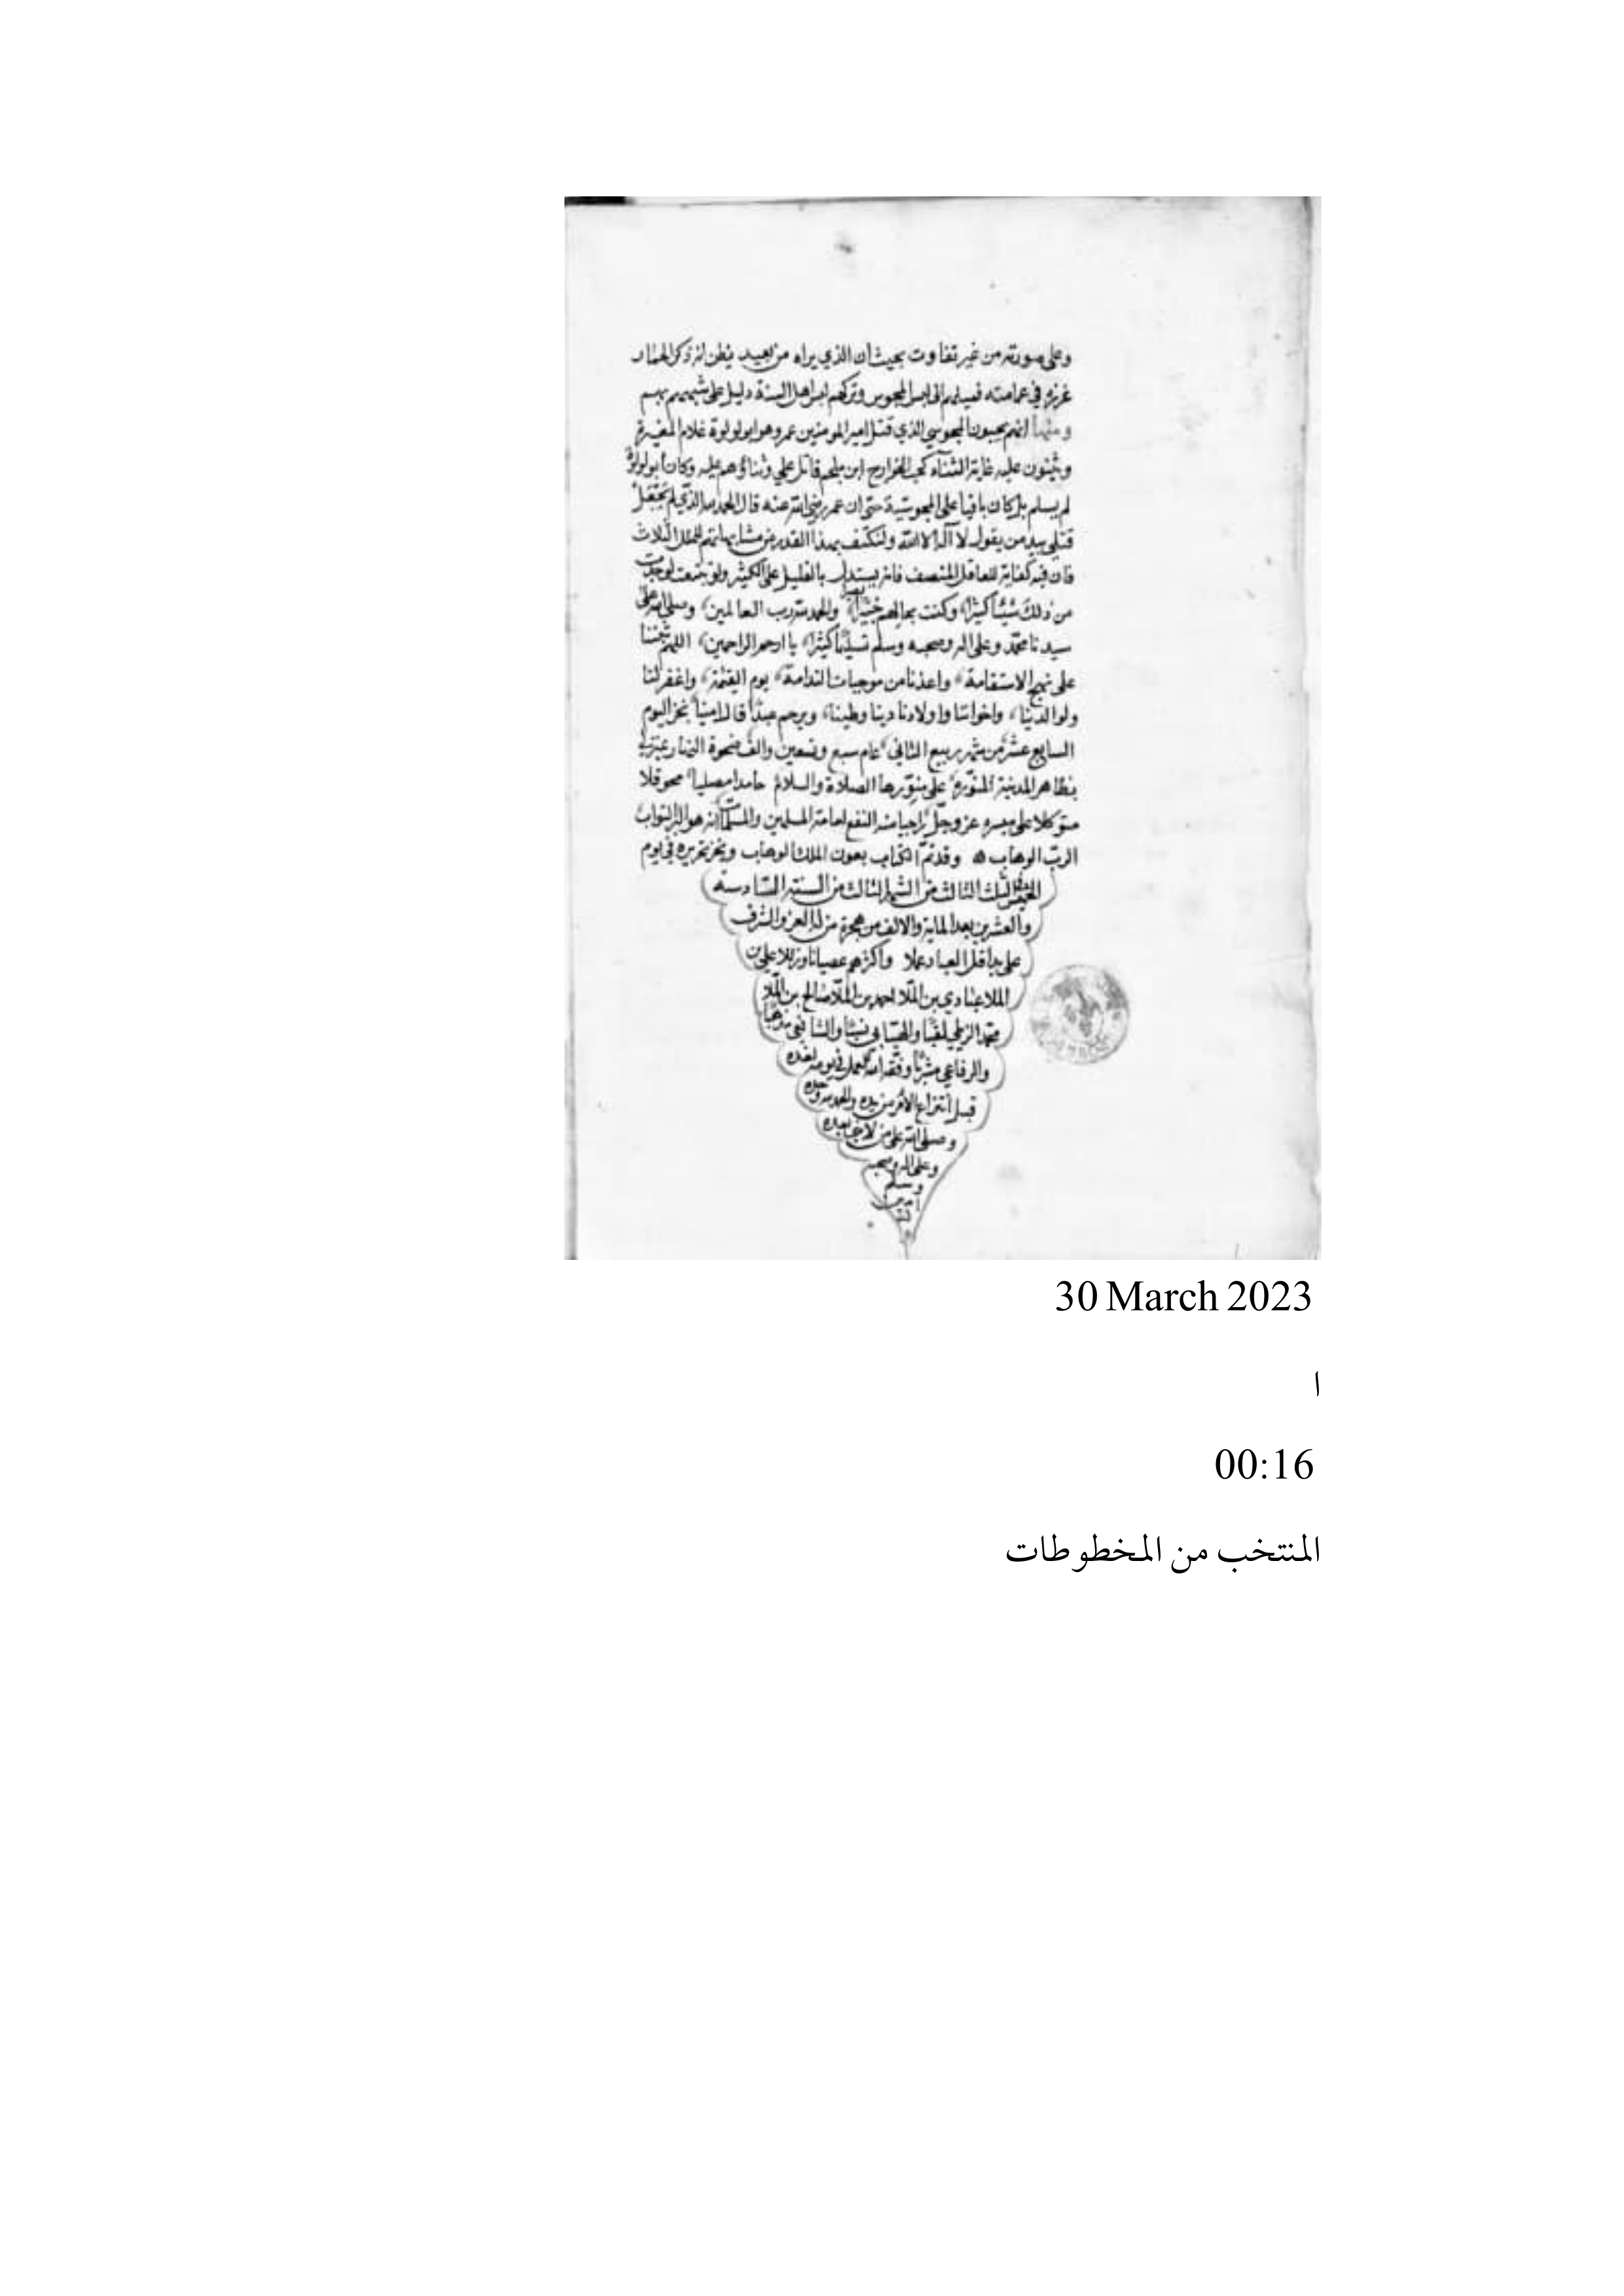 وعلى صورته من غير تفاوت بحيث ان الذي يراه من بعيد يظن انه ذكر الحمار
غرزه في عمامته فميلهم الى لبس المجوس وتركهم لبس اهل السنة دليل على شبههم بهم
ومنها انهم يحبون المجوسي الذي قتل امير المومنين عمر وهو ابو لولوة غلام المغيرة
ويثنون عليه غاية الثناء كحب الخوارج ابن ملجم قاتل علي وثناؤهم عليه وكان ابو لولوة
لم يسلم بل كان باقيا على المجوسية حتى ان عمر رضي الله عنه قال الحمد لله الذي لم يجعل
قتلي بيد من يقول لا اله الا الله ولنكتف بهذا القدر من مشابهاتهم للملل الثلاث
فان فيه كفاية للعاقل المنصف فانه يستدل بالقليل على الكثير ولو تتبعت لوجدت
من ذلك شيئا كثيرا وكنت بحالهم خبيرا والحمد لله رب العالمين وصلى الله على
سيدنا محمد وعلى اله وصحبه وسلم تسليما كثيرا يا ارحم الراحمين اللهم ثبتنا
على نهج الاستقامة واعذنا من موجبات الندامة يوم القيمة واغفر لنا
ولوالدينا واخواننا واولادنا دينا وطينا ويرحم عبدا قال امينا نجز اليوم
السابع عشر من شهر ربيع الثاني عام سبع وتسعين والف ضحوة النهار بمنزلي
بظاهر المدينة المنورة على منورها الصلاة والسلام حامدا مصليا محوقلا
متوكلا على ميسره عز وجل راجيا منه النفع لعامة المسلمين والمسلمات انه هو البر التواب
الرب الوهاب وقد تم الكتاب بعون الملك الوهاب ونجز تحريره في يوم
الثلث الثالث من الشهر الثالث من السنة السادسة
والعشرين بعد الماية والالف من هجرة من له العز والشرف
على يد اقل العباد عملا واكثرهم عصيانا وزللا علي بن
الملا عبادي بن الملا احمد بن الملا صالح بن الملا
محمد لقبا نسبا والشافعي مذهبا
والرفاعي مشربا وفقه الله للعمل في يومه لغده
قبل انتزاع الامر من يده والحمد لله وحده
وصلى الله على من لا نبي بعده
وعلى اله وصحبه
وسلم
امين
30 March 2023
ا
00:16
المنتخب من المخطوطات